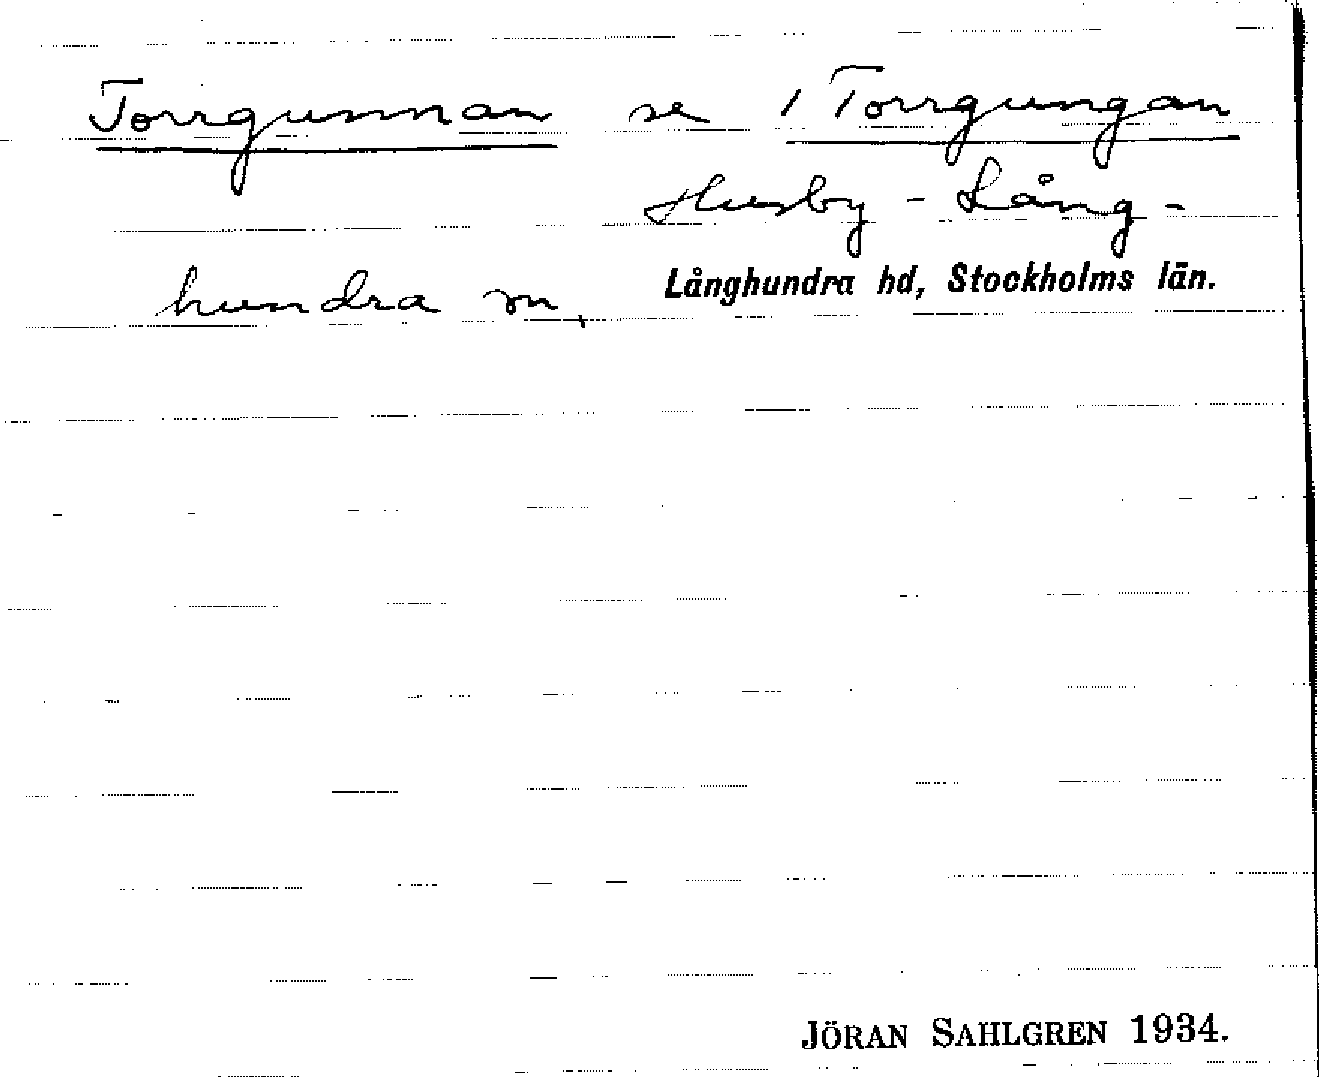 Torrgunnan se / Torrgungan
Husby-Lång-
hundra sn, Långhundra hd, Stockholms län.
JÖRAN SAHLGREN 1934.